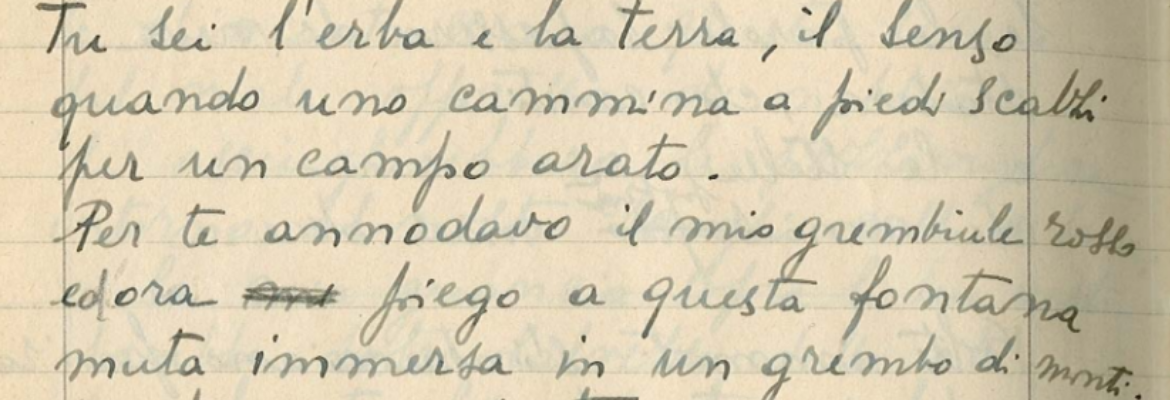 Tu sei l'erba e la terra, il senso
quando uno cammina a piedi scalzi
per un campo arato.
Per te annodavo il mio grembiule rosso
ed ora piego a questa fontana
muta immersa in un grembo di monti.